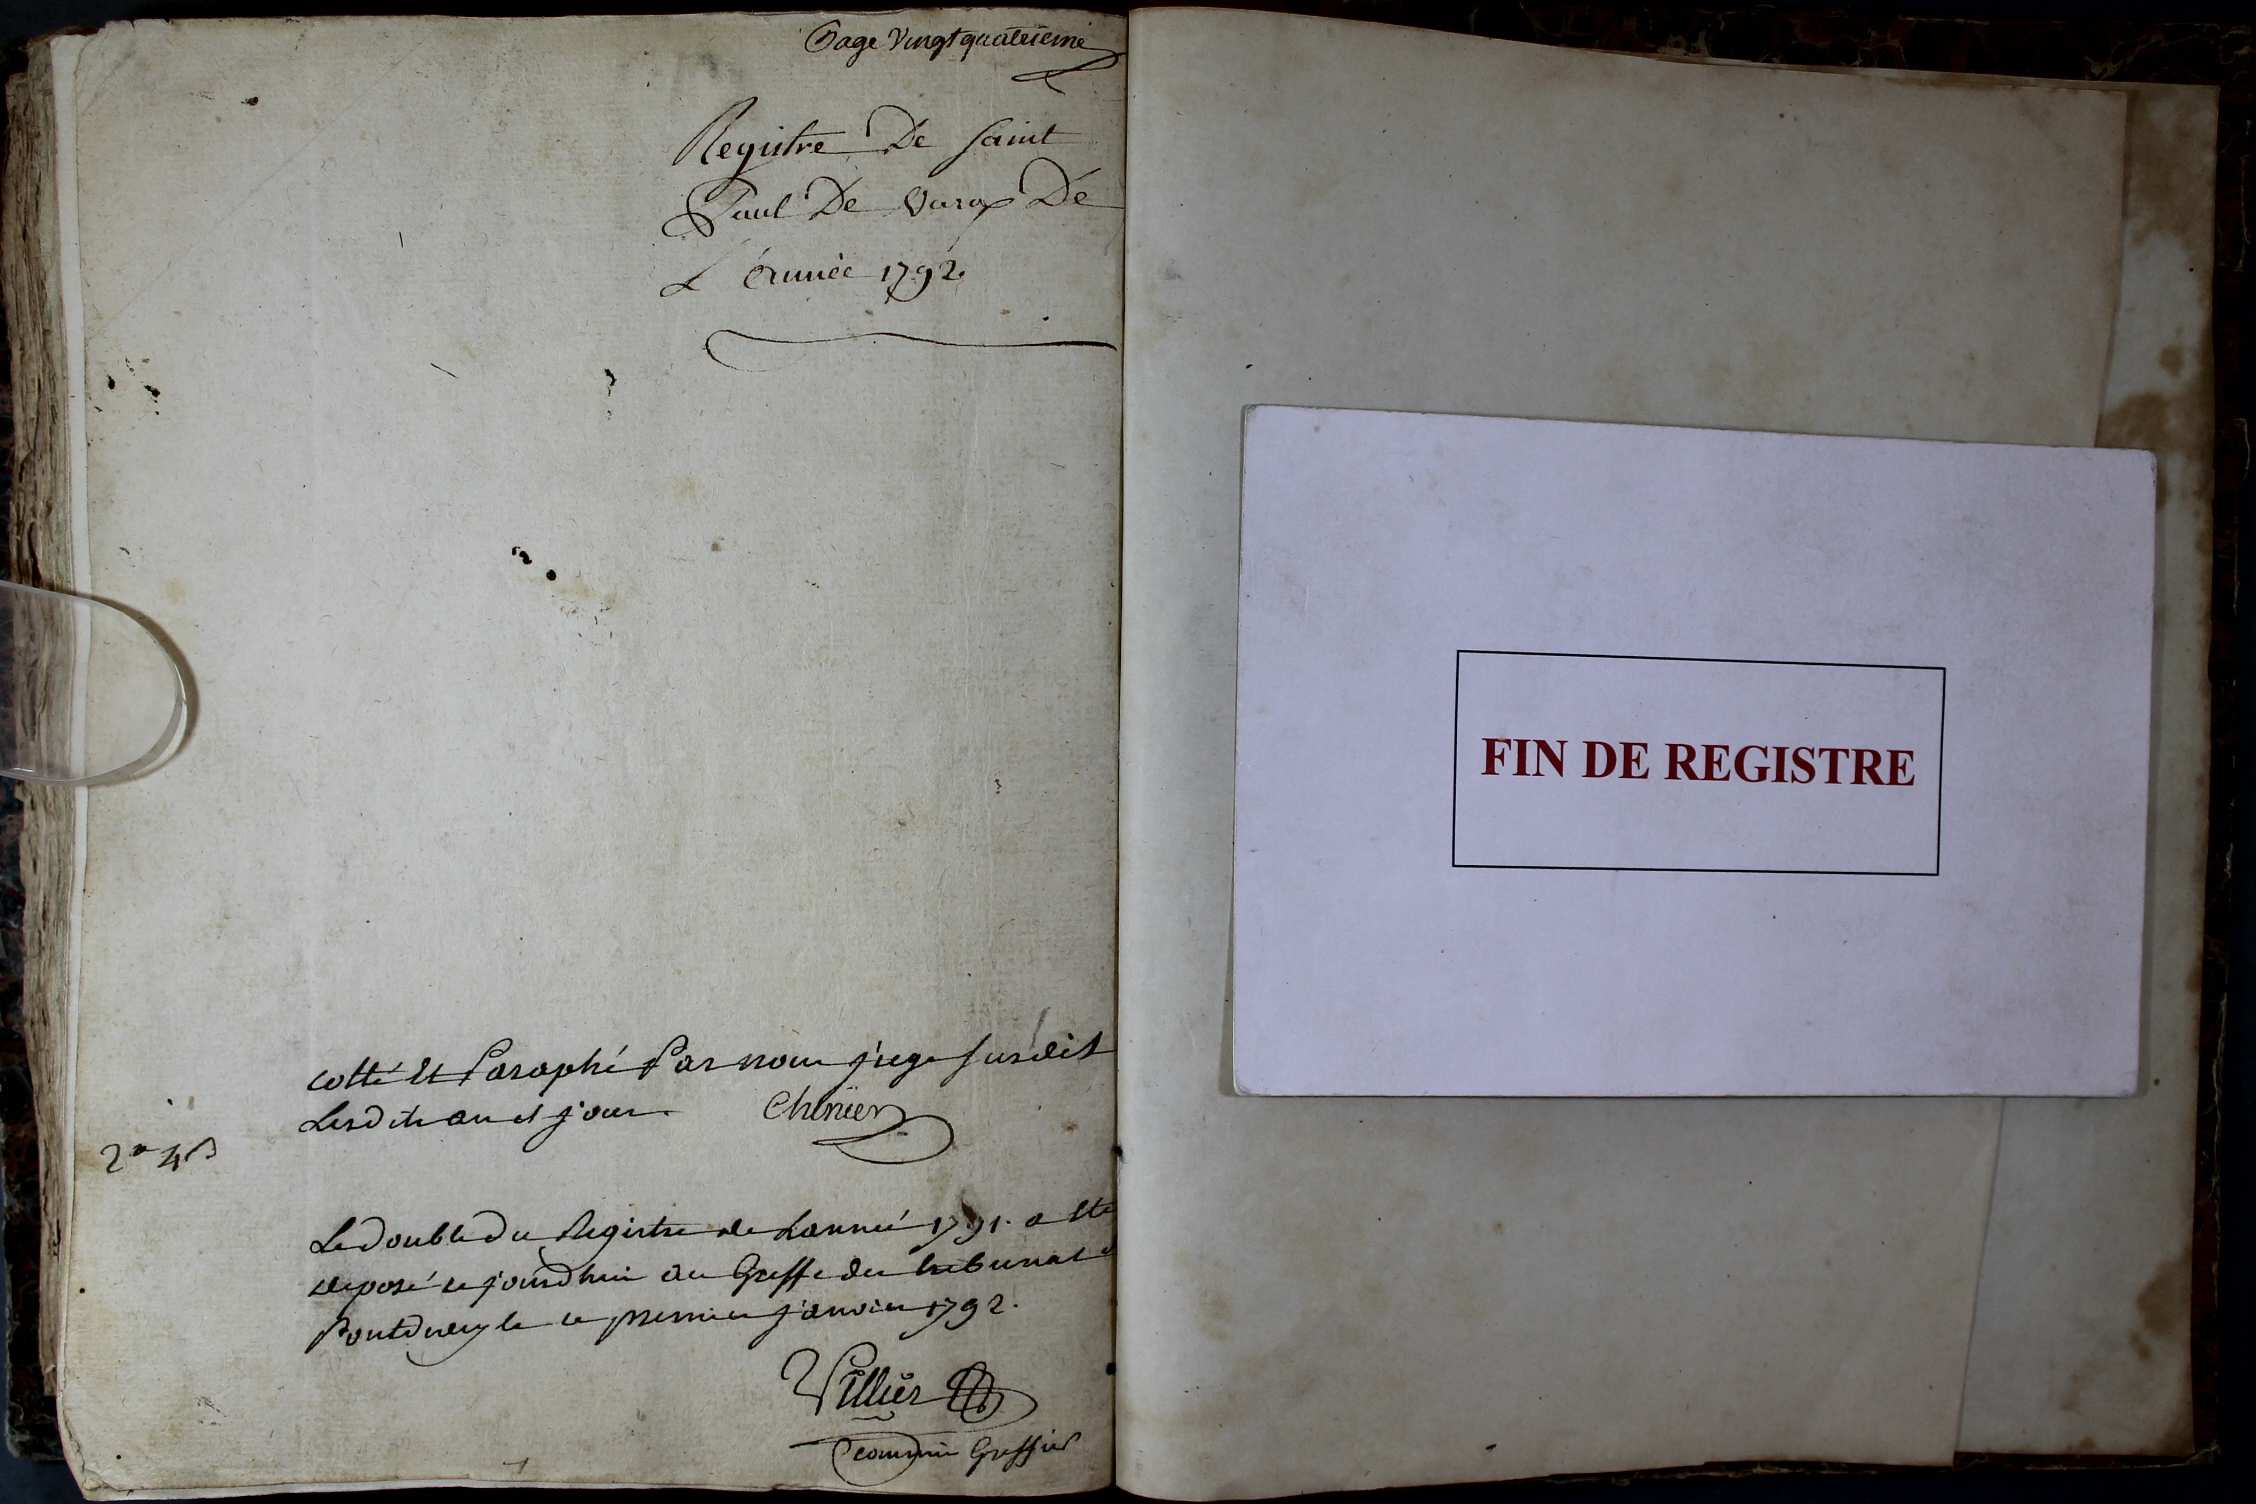 Page Vingt quatrieme
Registre De Saint
Paul De Varax De
L'Année 1792.
cotté Et Paraphé Par nous juge susdit
Lesdits an et jour. Chenier
Le double du Registre de Lannée 1791. a Ete
deposé cejourdhui au Greffe du tribunal
Pontdveyle ce premier janvier 1792.
Villier
commis Greffier
FIN DE REGISTRE